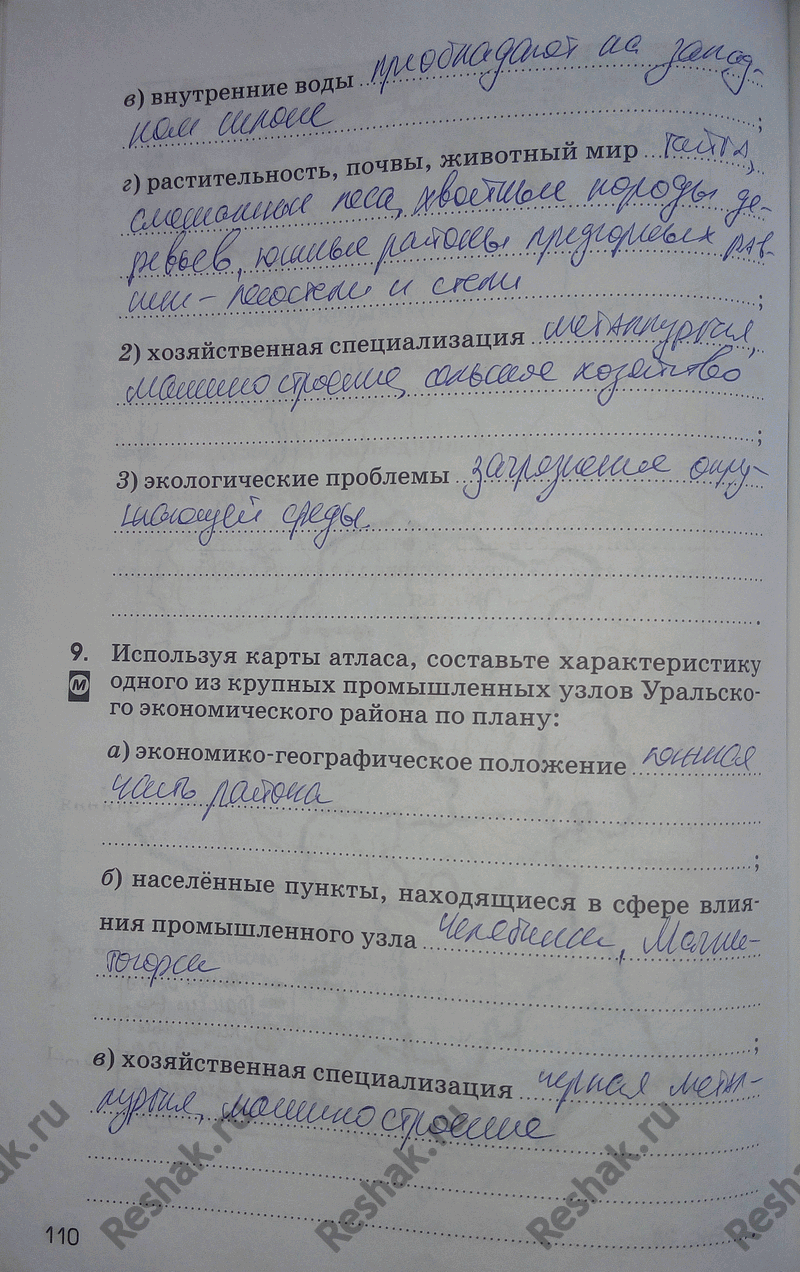 в) внутренние воды преобладают на запад-
ном склоне ;
г) растительность, почвы, животный мир тайга,
смешанные леса, хвойные породы де-
ревьев, южные районы предгорных рав-
нин - лесостепи и степи ;
2) хозяйственная специализация металлургия,
машиностроение, сельское хозяйство
;
3) экологические проблемы загрязнение окру-
жающей среды
.
9. Используя карты атласа, составьте характеристику
М одного из крупных промышленных узлов Уральско-
го экономического района по плану:
а) экономико-географическое положение южная
часть района
;
б) населённые пункты, находящиеся в сфере влия-
ния промышленного узла Челябинск, Магни-
тогорск
;
в) хозяйственная специализация черная метал-
лургия, машиностроение
.
110
Reshak.ru Reshak.ru Reshak.ru